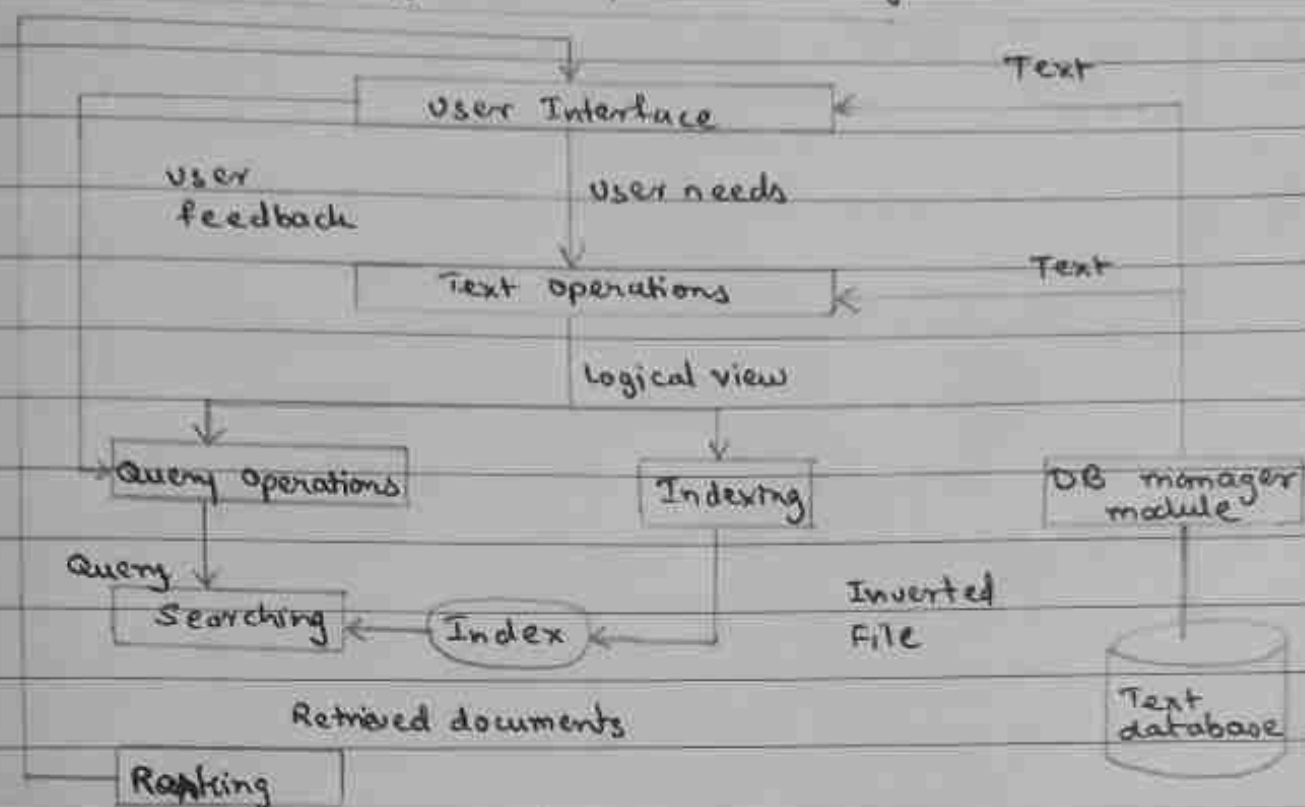 Text
User Interface
User
feedback
User needs
Text
Text operations
Logical view
Query operations
Indexing
DB manager
module
Query
Searching
Index
Inverted
File
Text
database
Retrieved documents
Ranking